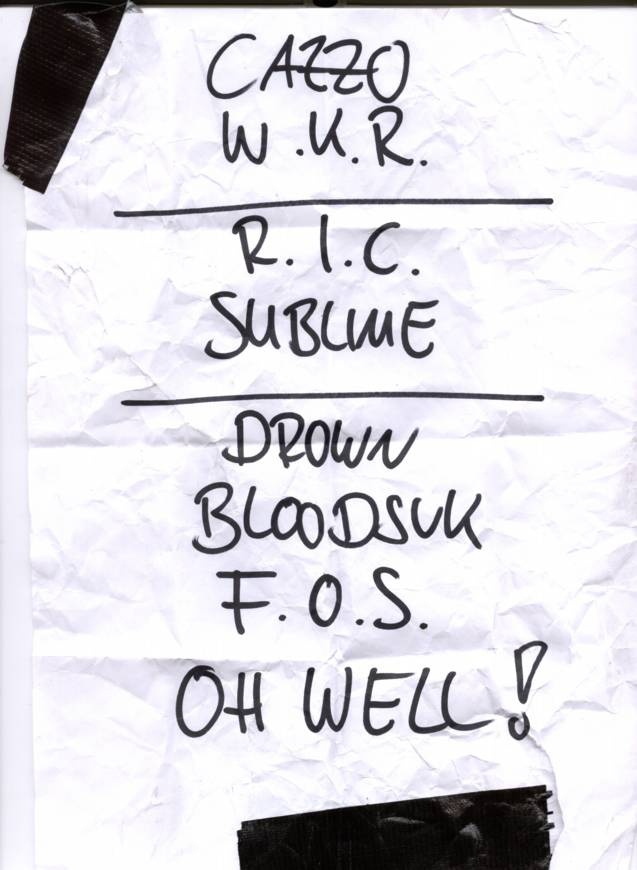 CAZZO
W.K.R.
R.I.C.
SUBLIME
DROWN
BLOODSUK
F.O.S.
OH WELL!